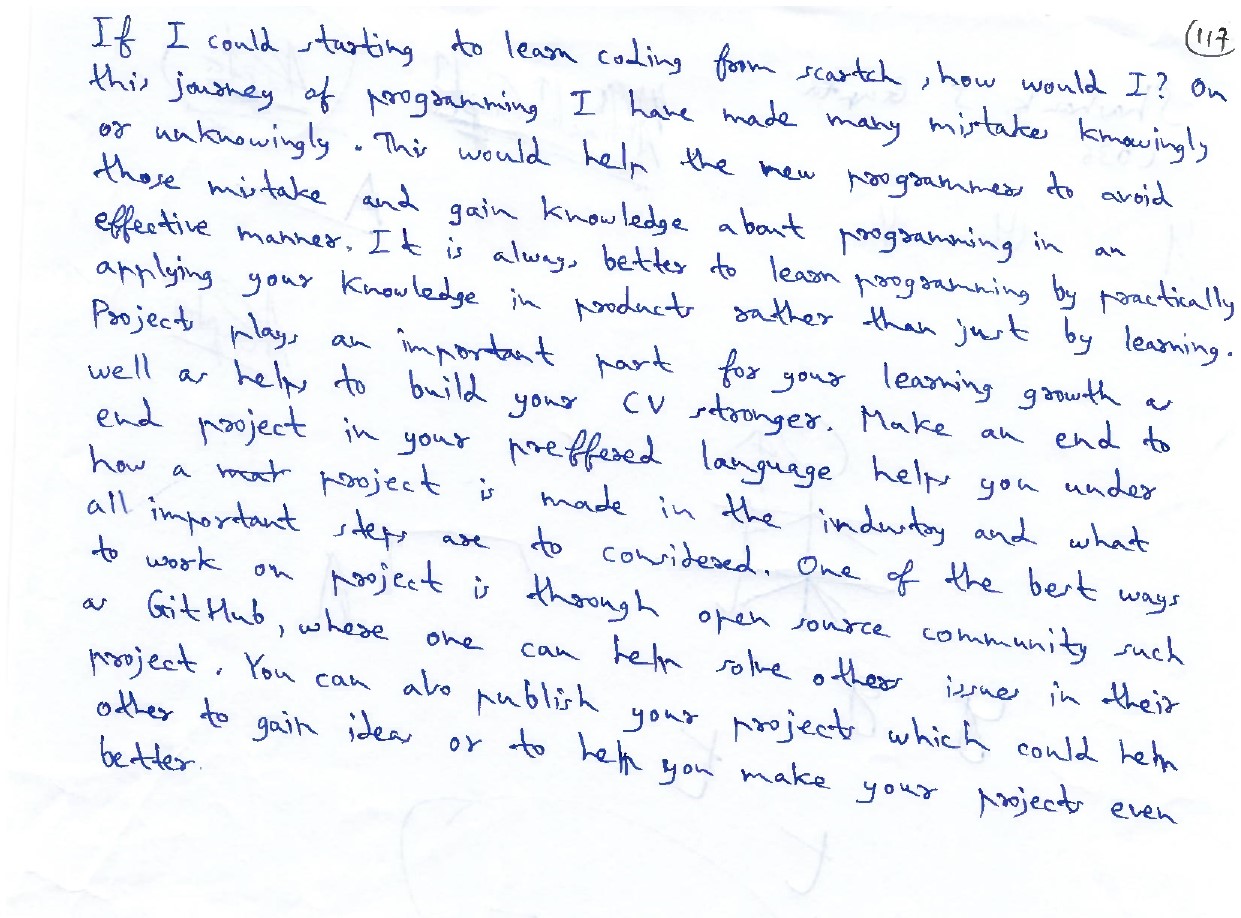 (117)
If I could starting to learn coding from scartch, how would I? On
this journey of programming I have made many mistakes knowingly
or unknowingly. This would help the new programmers to avoid
those mistake and gain knowledge about programming in an
effective manner. It is always better to learn programming by practically
applying your knowledge in products rather than just by learning.
Projects plays an important part for your learning growth as
well as helps to build your CV stronger. Make an end to
end project in your preffered language helps you under
how a project is made in the industry and what
all important steps are to considered. One of the best ways
to work on project is through open source community such
as GitHub, where one can help solve others issues in their
project. You can also publish your projects which could help
other to gain ideas or to help you make your projects even
better.